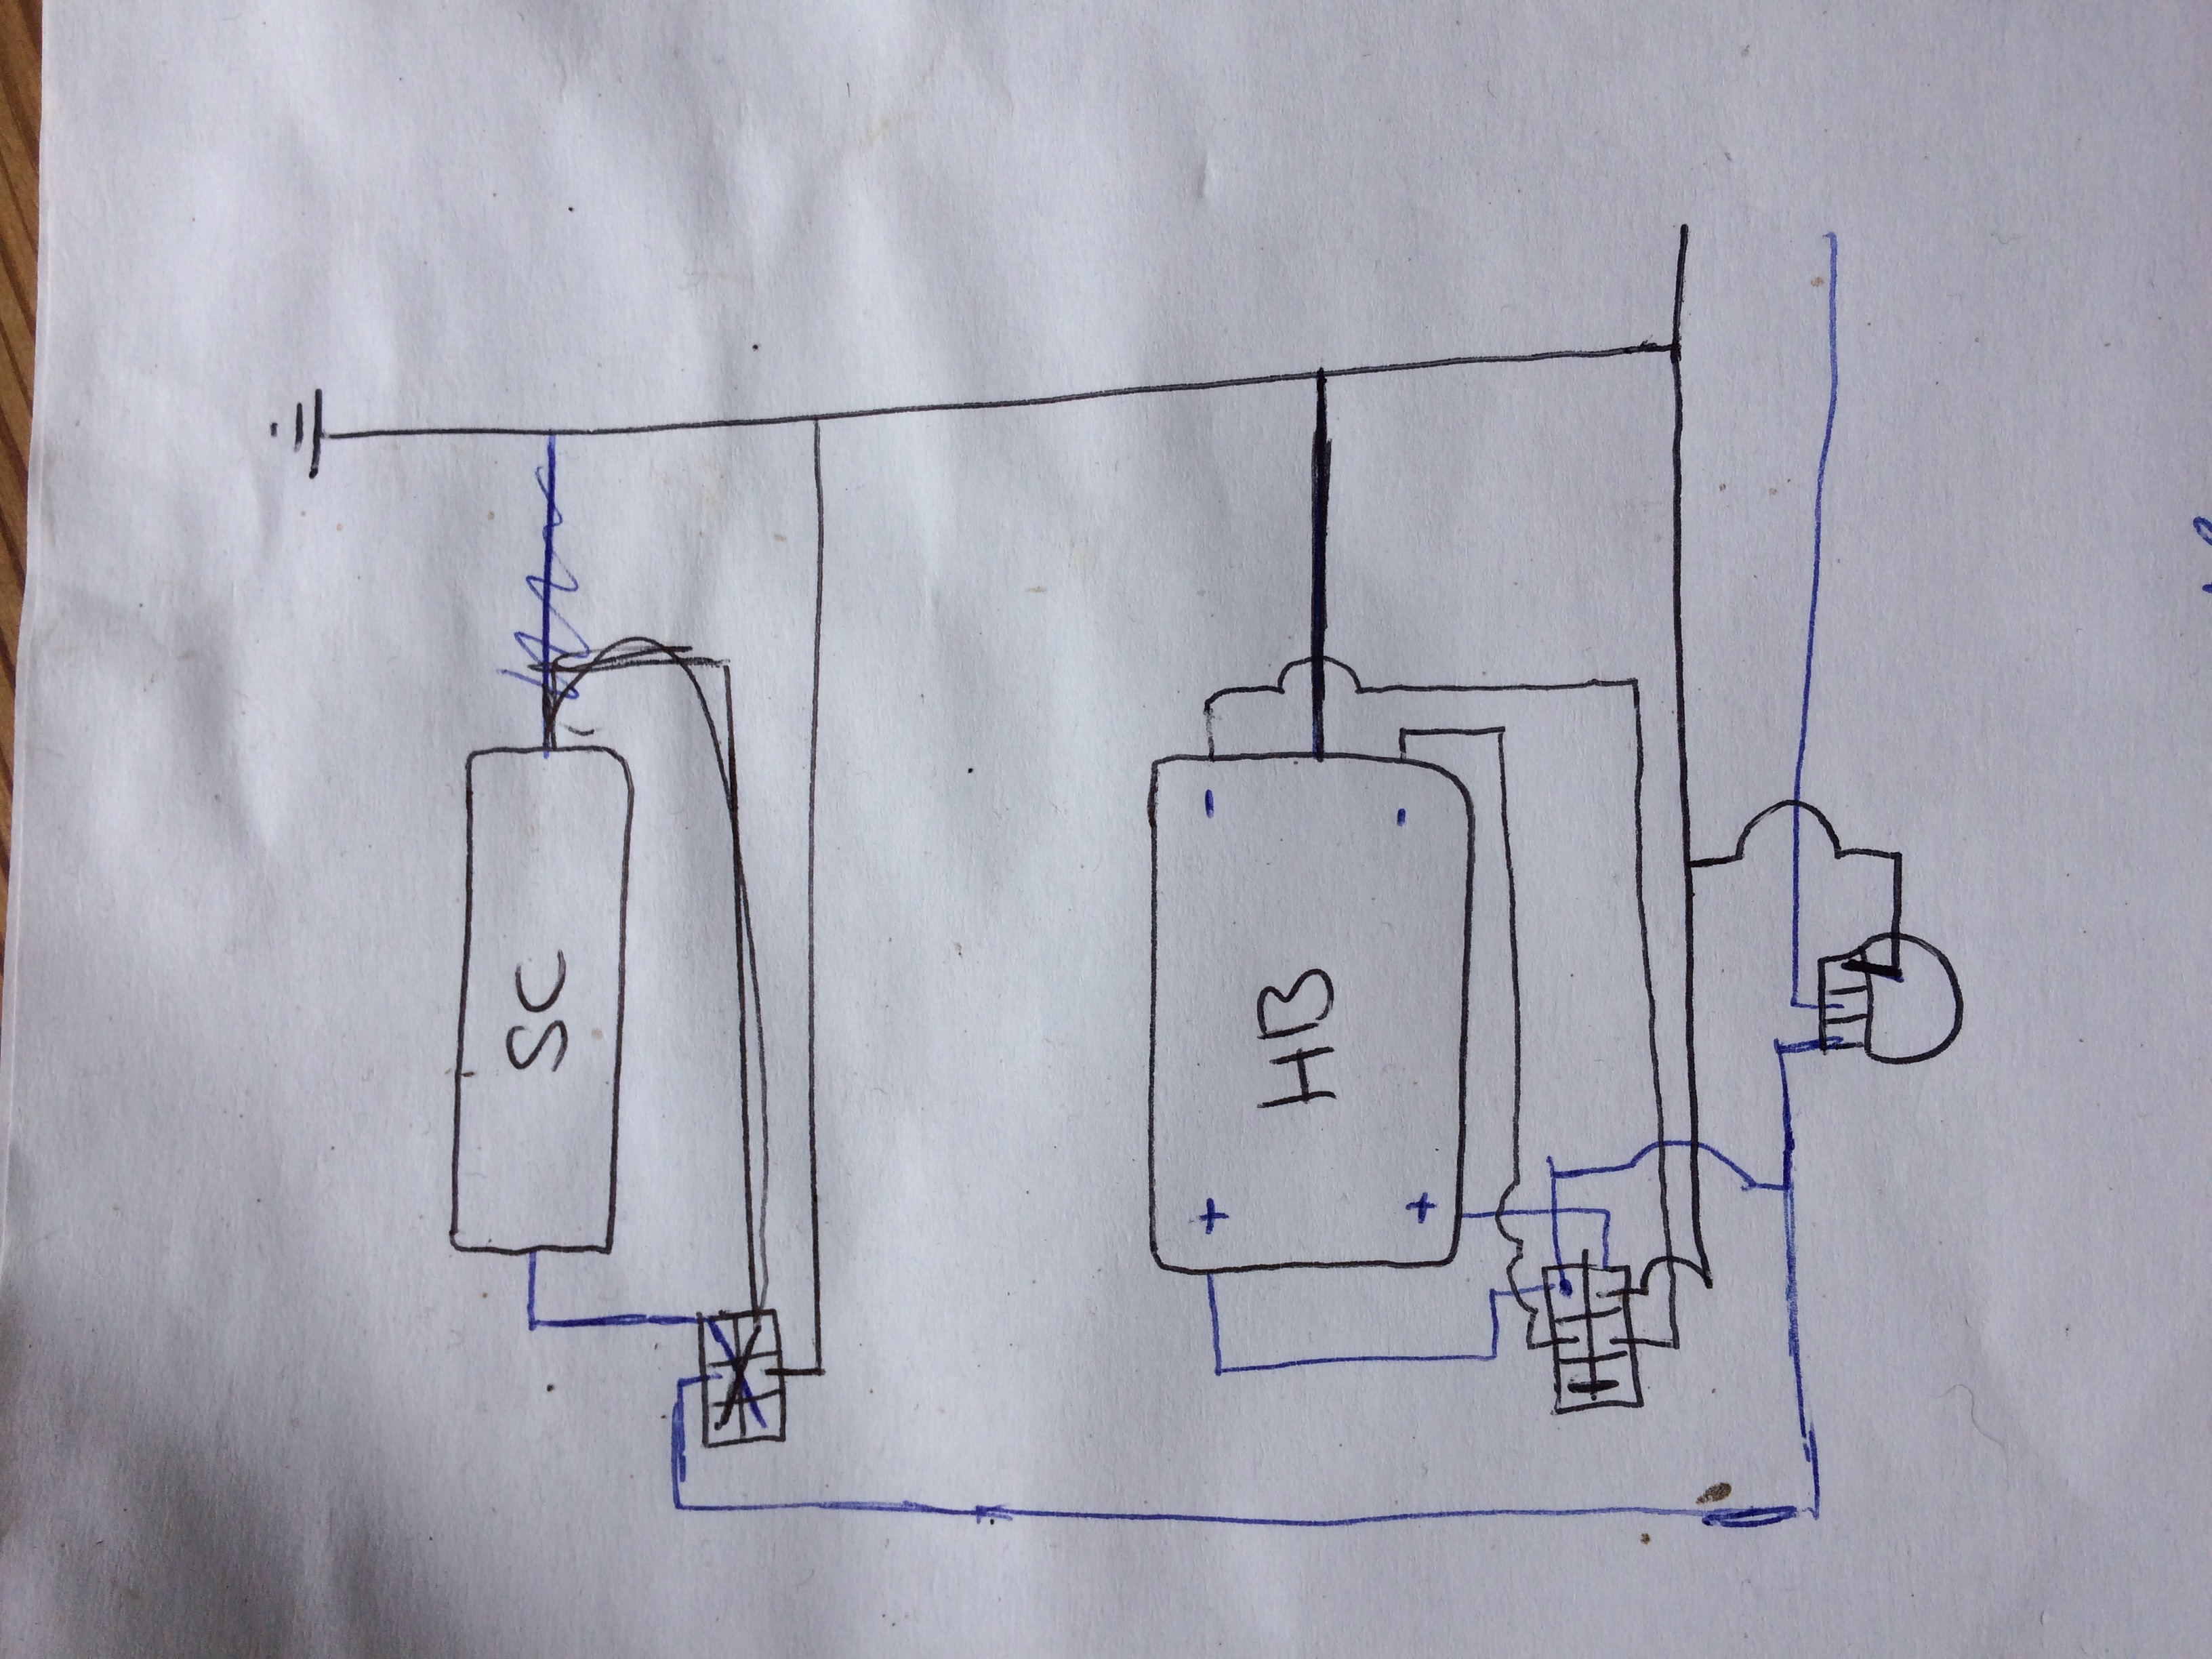 SC
+ -
HB
+ -